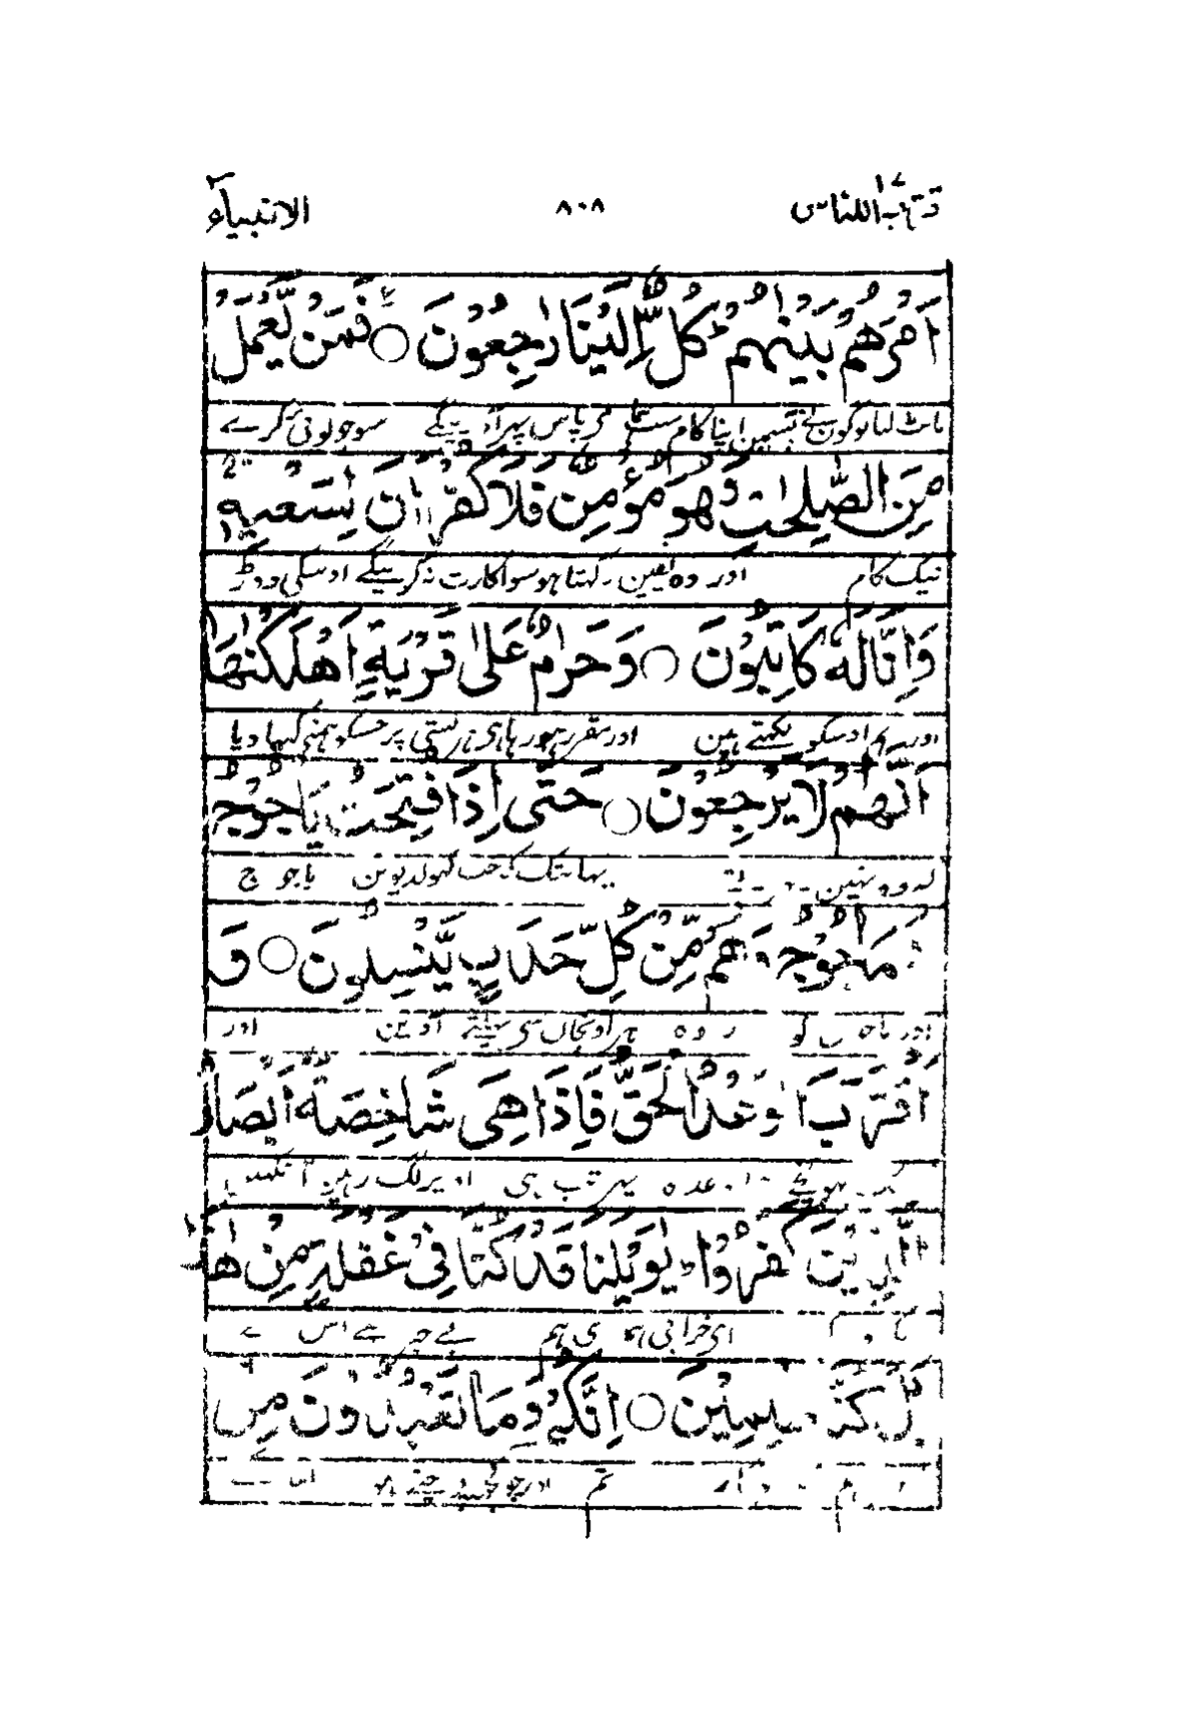 اقترب للناس ١٧
٨٠٨
الانبیاء
اَمْرَهُمْ بَيْنَهُمْ كُلٌّ اِلَيْنَا رٰجِعُوْنَ ○ فَمَنْ يَّعْمَلْ
اپنا کام سب پاس پھر آوینگے سو جو کوئی کرے
مِنَ الصّٰلِحٰتِ وَهُوَ مُؤْمِنٌ فَلَا كُفْرَانَ لِسَعْيِهٖ
نیک کام اور وہ یقین رکہتا ہو سو اکارت نہ کرینگے اوسکی دوڑ
وَاِنَّا لَهٗ كَاتِبُوْنَ ○ وَحَرَامٌ عَلٰى قَرْيَةٍ اَهْلَكْنٰهَا
اور ہم اوسکو لکہتے ہین اور مقرر ہو رہا ہی ہر بستی پر جسکو ہمنے کہپا دیا
اَنَّهُمْ لَا يَرْجِعُوْنَ ○ حَتّٰى اِذَا فُتِحَتْ يَاْجُوْجُ
کہ وہ نہین یہانتک کہ جب کہولدیوین یاجوج
وَمَاْجُوْجُ وَهُمْ مِّنْ كُلِّ حَدَبٍ يَّنْسِلُوْنَ ○ وَ
اور ماجوج کو اور وہ ہر اوچان سی پہیلتے آوین اور
اقْتَرَبَ الْوَعْدُ الْحَقُّ فَاِذَا هِىَ شَاخِصَةٌ اَبْصَارُ
وعدہ اوپر لگ رہین آنکہین
الَّذِيْنَ كَفَرُوْا يٰوَيْلَنَا قَدْ كُنَّا فِىْ غَفْلَةٍ مِّنْ هٰذَا
ای خرابی ہماری ہم بے خبر رہے اس سے
بَلْ كُنَّا ظٰلِمِيْنَ ○ اِنَّكُمْ وَمَا تَعْبُدُوْنَ مِنْ
تم اور جو کچھ پوجتے ہو